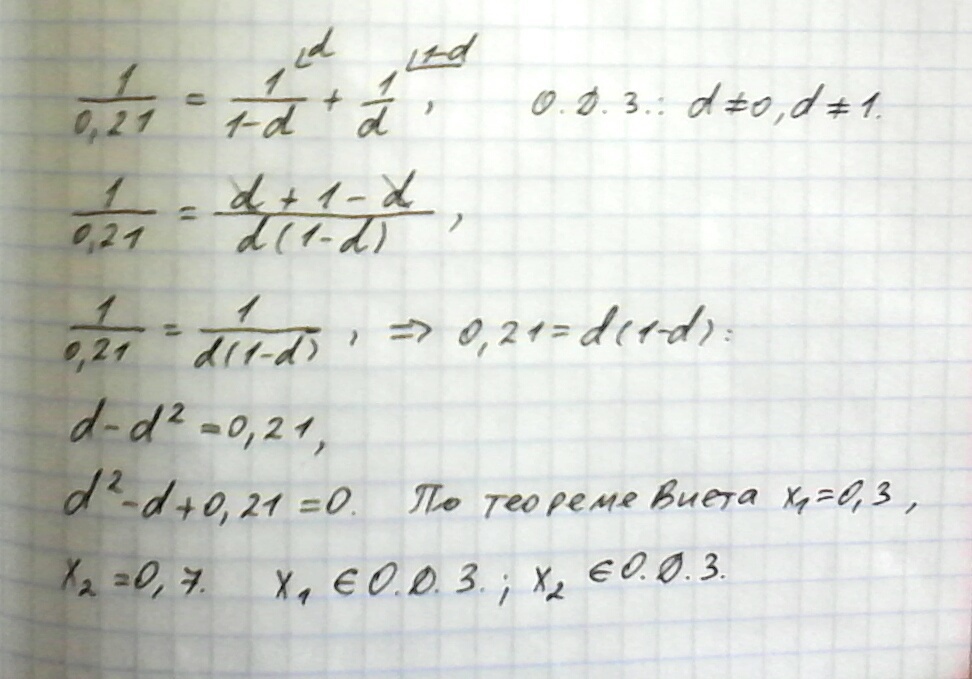 1/0,21 = 1/(1-d) ⌊d + 1/d ⌊1-d, О.Д.З.: d≠0, d≠1.
1/0,21 = (d + 1 - d)/(d(1-d)),
1/0,21 = 1/(d(1-d)), => 0,21 = d(1-d):
d - d² = 0,21,
d² - d + 0,21 = 0. По теореме Виета x₁=0,3,
x₂=0,7. x₁ ∈ О.Д.З.; x₂ ∈ О.Д.З.